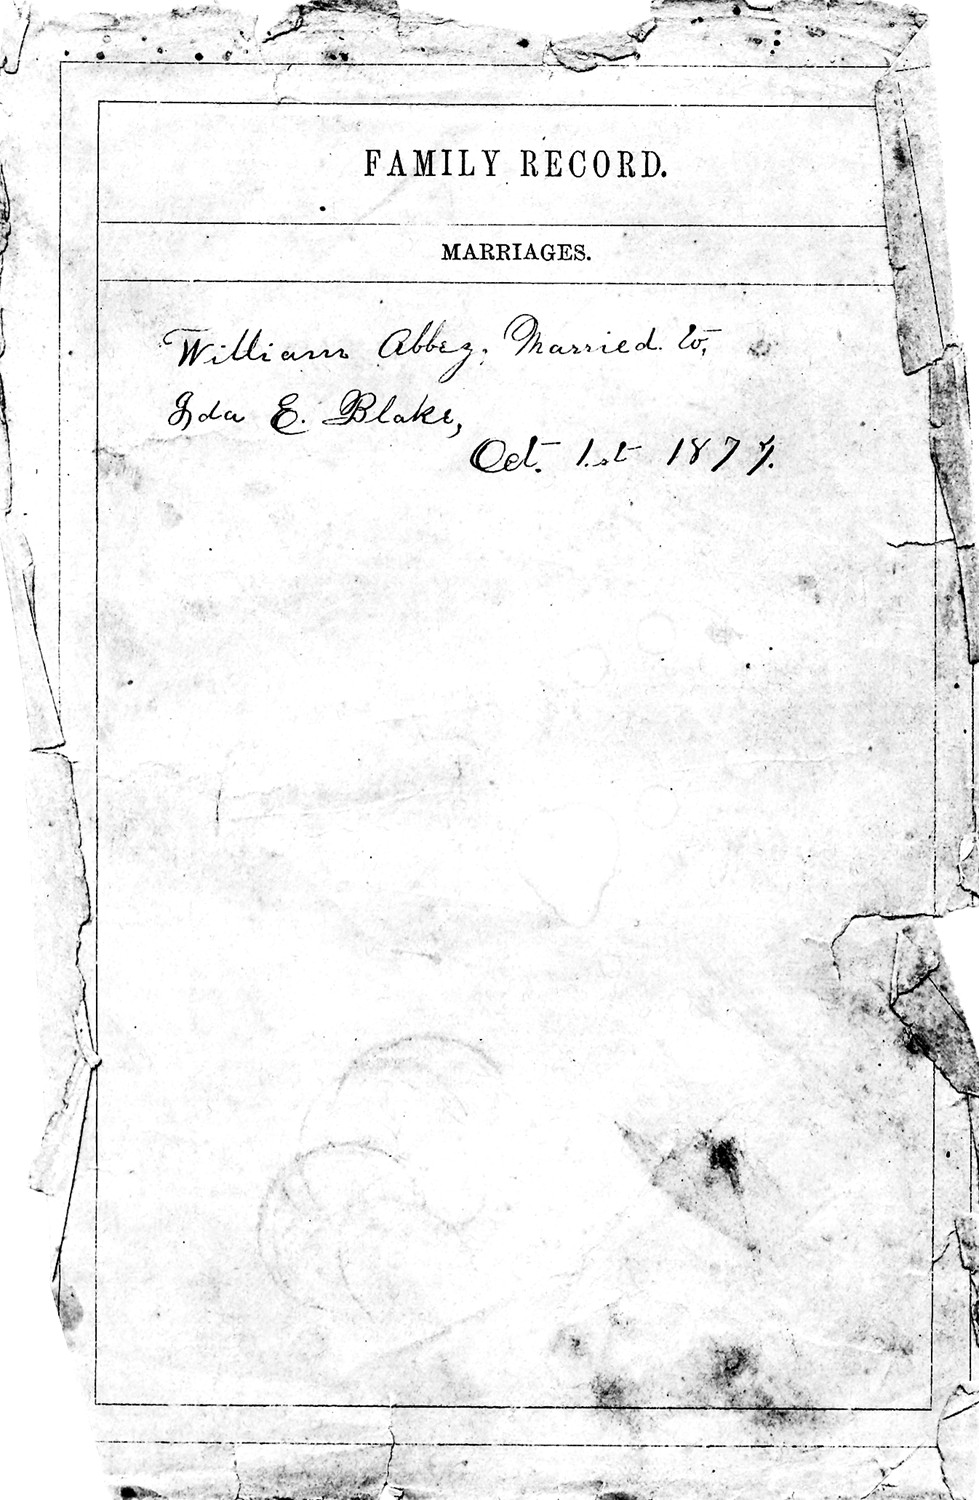 FAMILY RECORD.
MARRIAGES.
William Abbey. Married to,
Ida E. Blake,
Oct. 1st 1877.